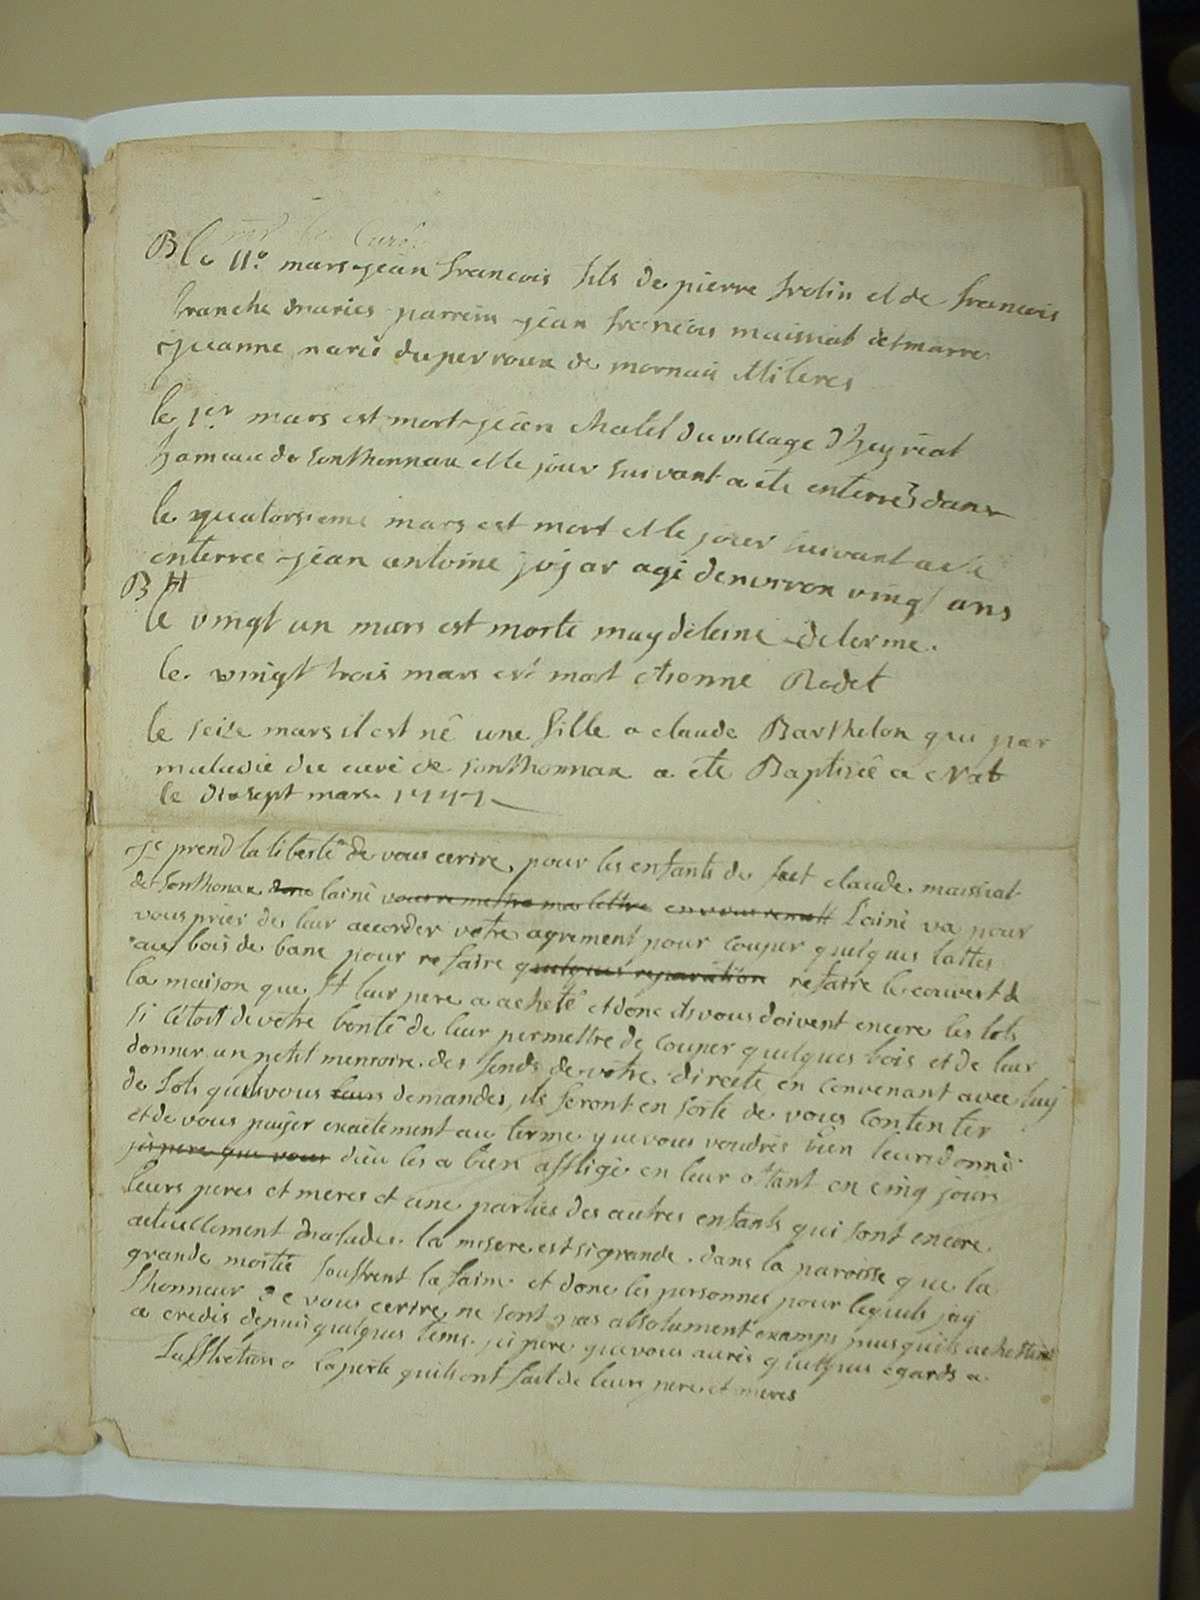 B le 11e mars jean francois fils de pierre frolin et de francois
branche maries parrein jean francois maissiat det marre
jeanne marie duperroux de mornai Mileres
le 1er mars est mort jean Chalel du village d heyriat
hameau de sonthonnax et le jour suivant a ete enterré dans
le quatorsieme mars est mort et le jour suivant a ete
enterree jean antoine jojar agé denviron vingt ans
B H
le vingt un mars est morte magdeleine delorme.
le vingt trois mars est mort etienne Rodet
le seize mars il est né une fille a claude Barthelon qui par
maladie du curé de sonthonnax a ete Baptisée a Nat
le dix sept mars 1747
je prend la liberté de vous ecrire pour les enfants de feet claude maissiat
de sonthonax lainé vous remettra ma lettre en vous remett Lainé va pour
vous prier de leur accorder votre agrement pour couper quelques lattes
au bois de banc pour refaire quelques reparation refaire le couvert de
la maison que st leur pere a acheté et donc ils vous doivent encore les lots
si cetoit de votre bonté de leur permettre de couper quelques bois et de leur
donner un petit memoire des fonds de votre directe en convenant avec luy
de lots quils vous leurs demandes, ils feront en sorte de vous contenter
et de vous paijer exactement au terme que vous voudrés bien leurs donné
jespere que vous dieu les a bien affligé en leur ottant en cinq jours
leurs peres et meres et une parties des autres enfants qui sont encore
actuellement malades. la misere est si grande dans la paroisse que la
grande moitié souffrent la faim et donc les personnes pour lequels jay
lhonneur de vous ecrire ne sont pas absolument examps puis quils achettent
a credis depuis quelques tems. jespere que vous aurés quelques egards a
Lafflretion a la perte quils ont fait de leurs pere et meres